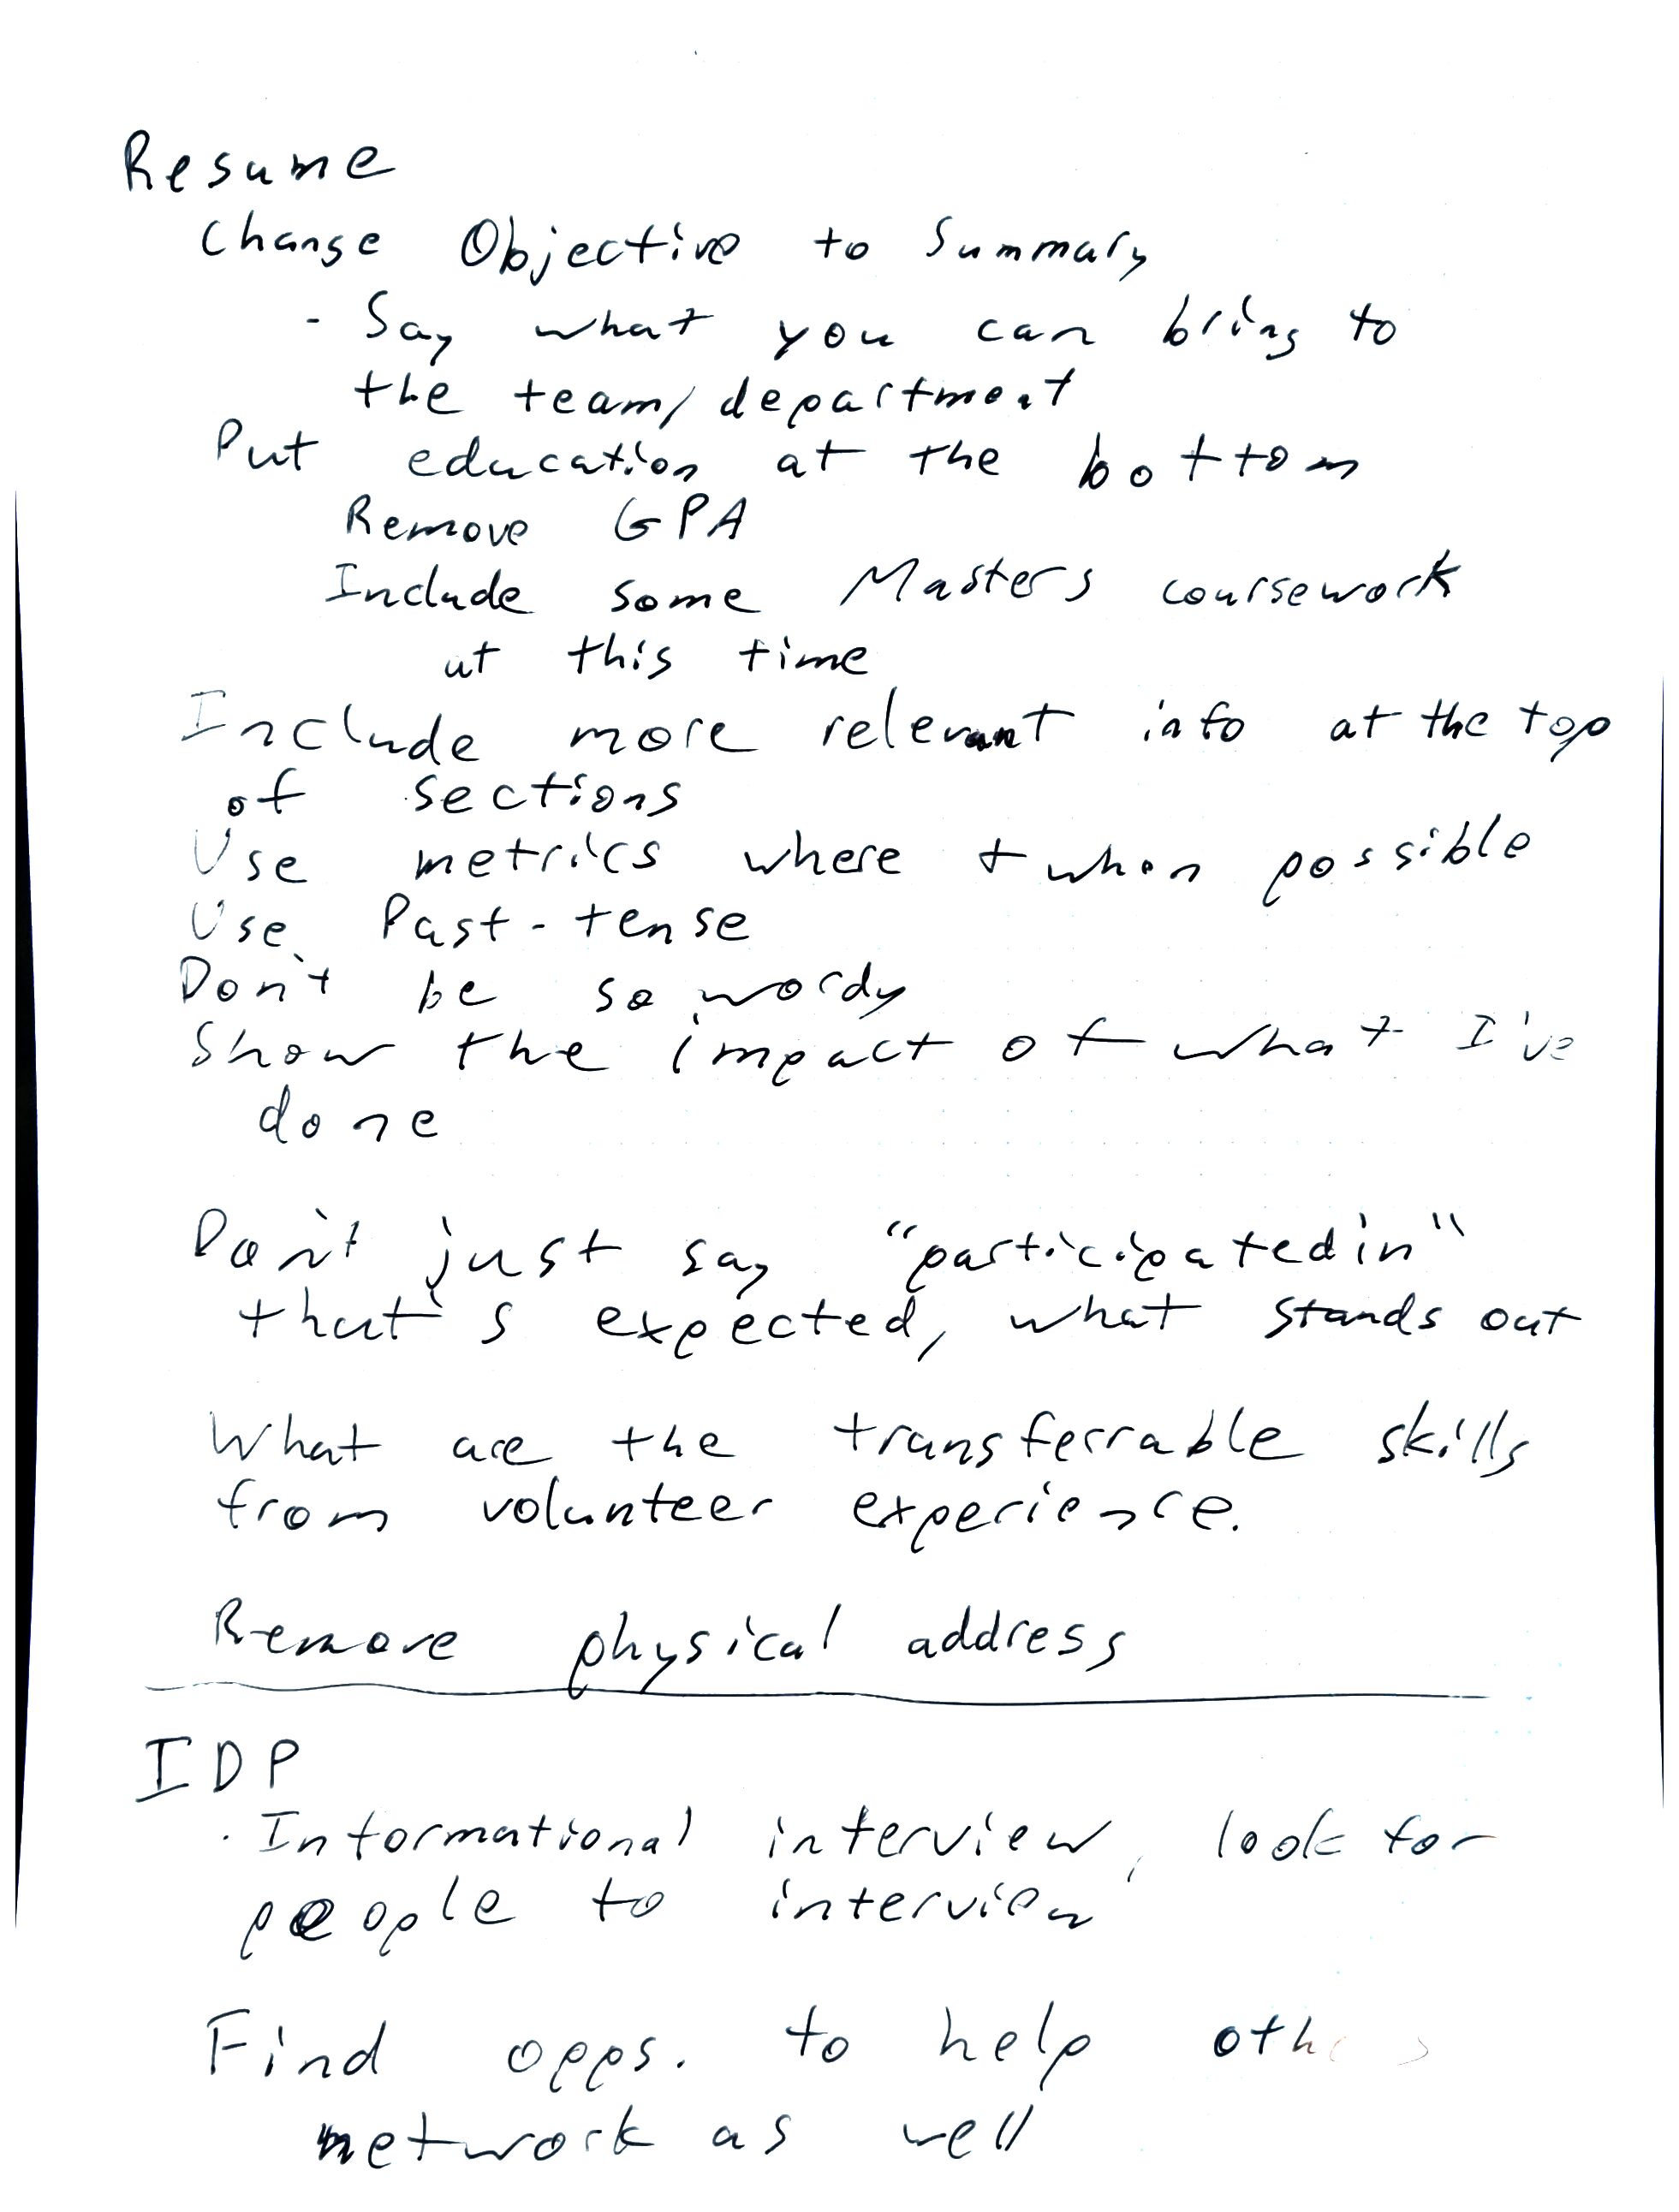 Resume
Change Objective to Summary
- Say what you can bring to
the team/department
Put education at the bottom
Remove GPA
Include some Masters coursework
at this time
Include more relevant info at the top
of sections
Use metrics where + when possible
Use Past-tense
Don't be so wordy
Show the impact of what I've
done
Don't just say "participated in"
that's expected, what stands out
What are the transferrable skills
from volunteer experience.
Remove physical address
IDP
· Informational interview, look for
people to interview
Find opps. to help
network as well